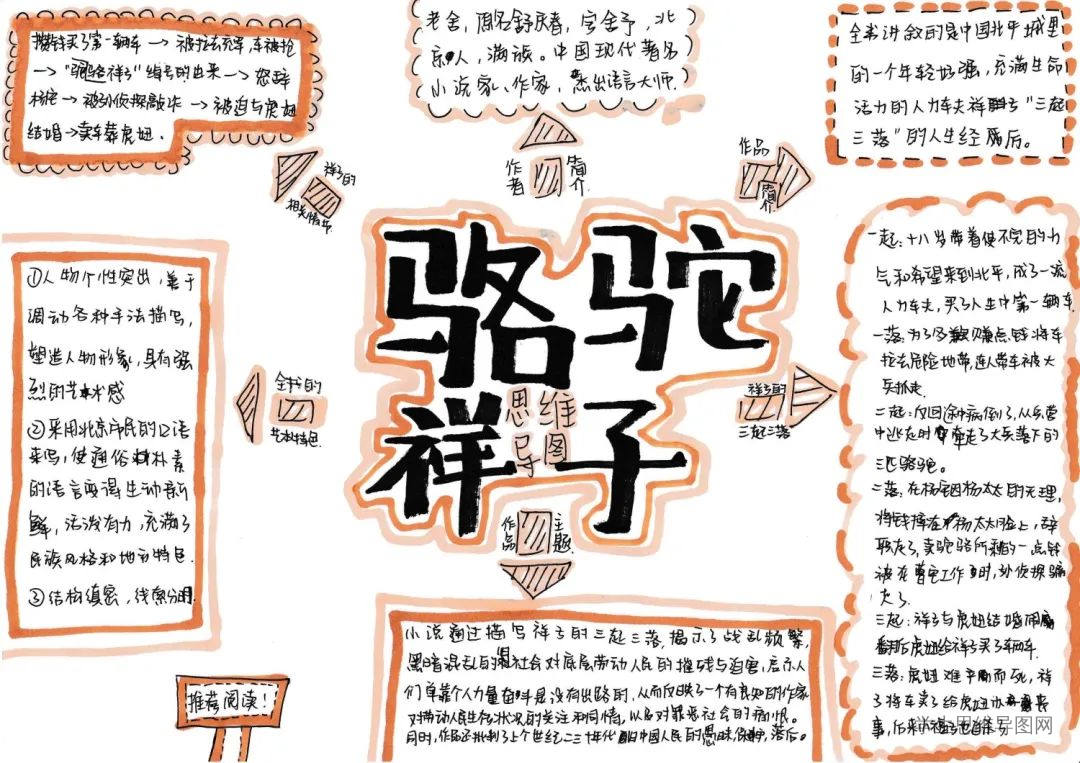 攒钱买了第一辆车→被拉去充军，车被抢
→"骆驼祥子"绰号的由来→怒辞
杨宅→被孙侦探敲诈→被迫与虎妞
结婚→卖车葬虎妞.
祥子的
相关情节
老舍，原名舒庆春，字舍予，北
京人，满族。中国现代著名
小说家、作家，杰出语言大师.
作者
简介
全书讲叙的是中国北平城里
的一个年轻好强，充满生命
活力的人力车夫祥子"三起
三落"的人生经历后。
作品
简介
骆驼
祥子
思维
导图
①人物个性突出，善于
调动各种手法描写，
塑造人物形象，具有强
烈的艺术感
②采用北京市民的口语
来写，使通俗朴素
的语言变得生动新
鲜，活泼有力，充满了
民族风格和地方特色.
③结构缜密，线索分明
全书的
艺术特色
祥子的
三起三落
一起：十八岁带着使不完的力
气和希望来到北平，成了一流
人力车夫，买了人生中第一辆车.
一落：为了多赚点钱将车
拉去危险地带，连人带车被大
兵抓走.
二起：返回途中病倒了，从兵营
中逃走时牵走了大兵落下的
三匹骆驼。
二落：在杨宅因杨太太的无理，
将钱摔在杨太太脸上，辞
职走了，卖骆驼所剩的一点钱
被在曹宅工作时，孙侦探骗
走了.
三起：祥子与虎妞结婚用
虎妞给祥子买了车
三落：虎妞难产而死，祥
子将车卖了给虎妞办丧
事，后来小福子也自杀
作品
主题
小说通过描写祥子的三起三落，揭示了战乱频繁，
黑暗混乱的旧社会对底层劳动人民的摧残与迫害，启示人
们单靠个人力量奋斗是没有出路的，从而反映了一个有良知的作家
对劳动人民生存状况的关注和同情，以及对罪恶社会的痛恨。
同时，作品还批判了上个世纪二三十年代中国人民的愚昧，落后。
推荐阅读！
思维导图网